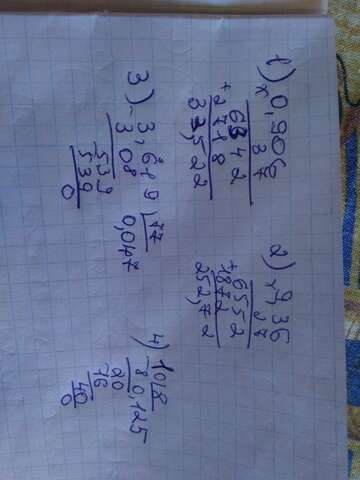 1) 0,906
× 37
6342
+ 2718
33,522
2) 9,36
× 27
6552
+ 1872
252,72
3) 3,619 77
308 0,047
539
539
0
4) 10 8
8 0,125
20
16
40
0